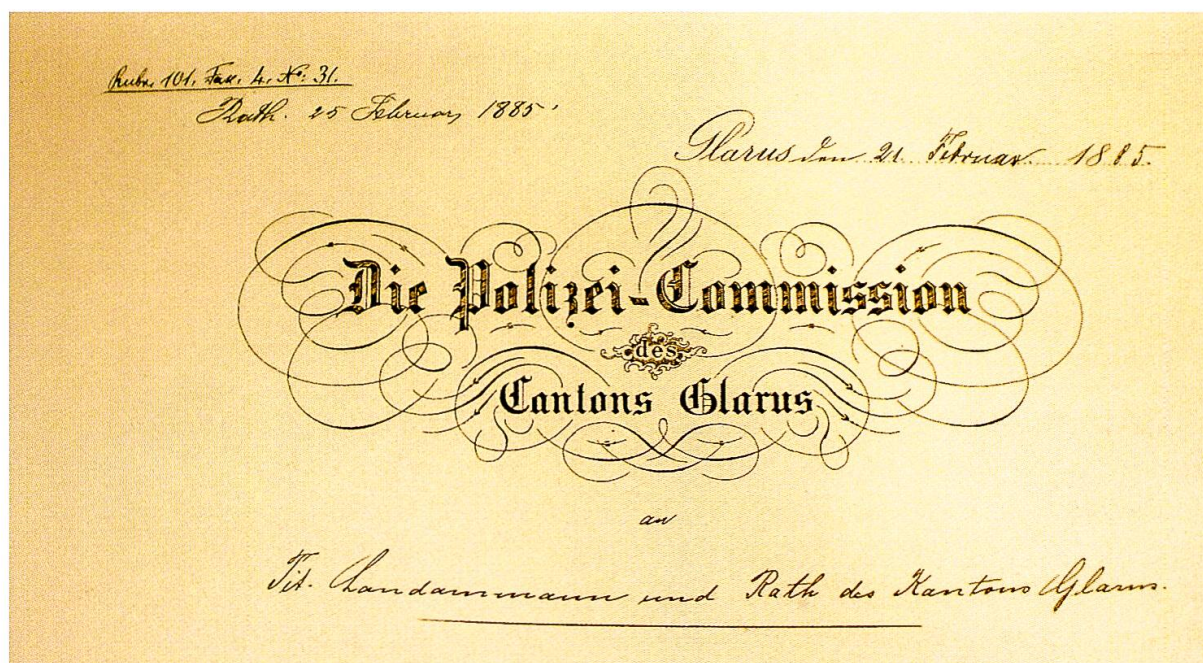 Rubr. 101. Fasc. 4. No: 31.
Rath. 25 Februar 1885.
Glarus den 21. Februar 1885.
Die Polizei-Commission
des
Cantons Glarus
an
Tit. Landammann und Rath des Kantons Glarus.